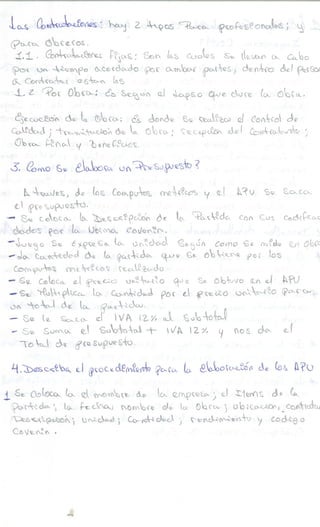 Las Contrataciones: hay 2 tipos Para profesionales; y
para obreros.
1.1. Contrataciones Fijas: Son las cuales se llevan a cabo
por un tiempo acordado por ambas partes, dentro del perso
a Contratar estan los
1.2 Por Obra: es Segun el lapso que dure la Obra.
Ejecución de la Obra: es donde Se realiza el Control de
Calidad; tramitación de la Obra; recepción del Contratante;
Obra Final y beneficios.
3. Como Se elabora un Presupuesto?
A través, de los Computos metricos y el APU Se Saca
el presupuesto.
- Se coloca la Descripción de la Partida con sus codific
dados por la Norma Covenin.
- Luego Se expresa la unidad Según como Se mide en Obra
- La Cantidad de la partida que Se obtiene por los
Computos metricos realizado
- Se Coloca el precio unitario que Se obtuvo en el APU
- Se Multiplica la Cantidad por el precio unitario para
un total de la partida.
- Se le Saca el IVA 12% al Subtotal
- Se Suma el Subtotal + IVA 12% y nos da el
Total de presupuesto.
4. Describa el procedimiento para la elaboración de los APU
1 Se Coloca la el nombre de la empresa; el Items de la
Partida; la fecha; nombre de la Obra; ubicación, contrata
Descripción; unidad; Cantidad; rendimiento y codigo
Covenin.